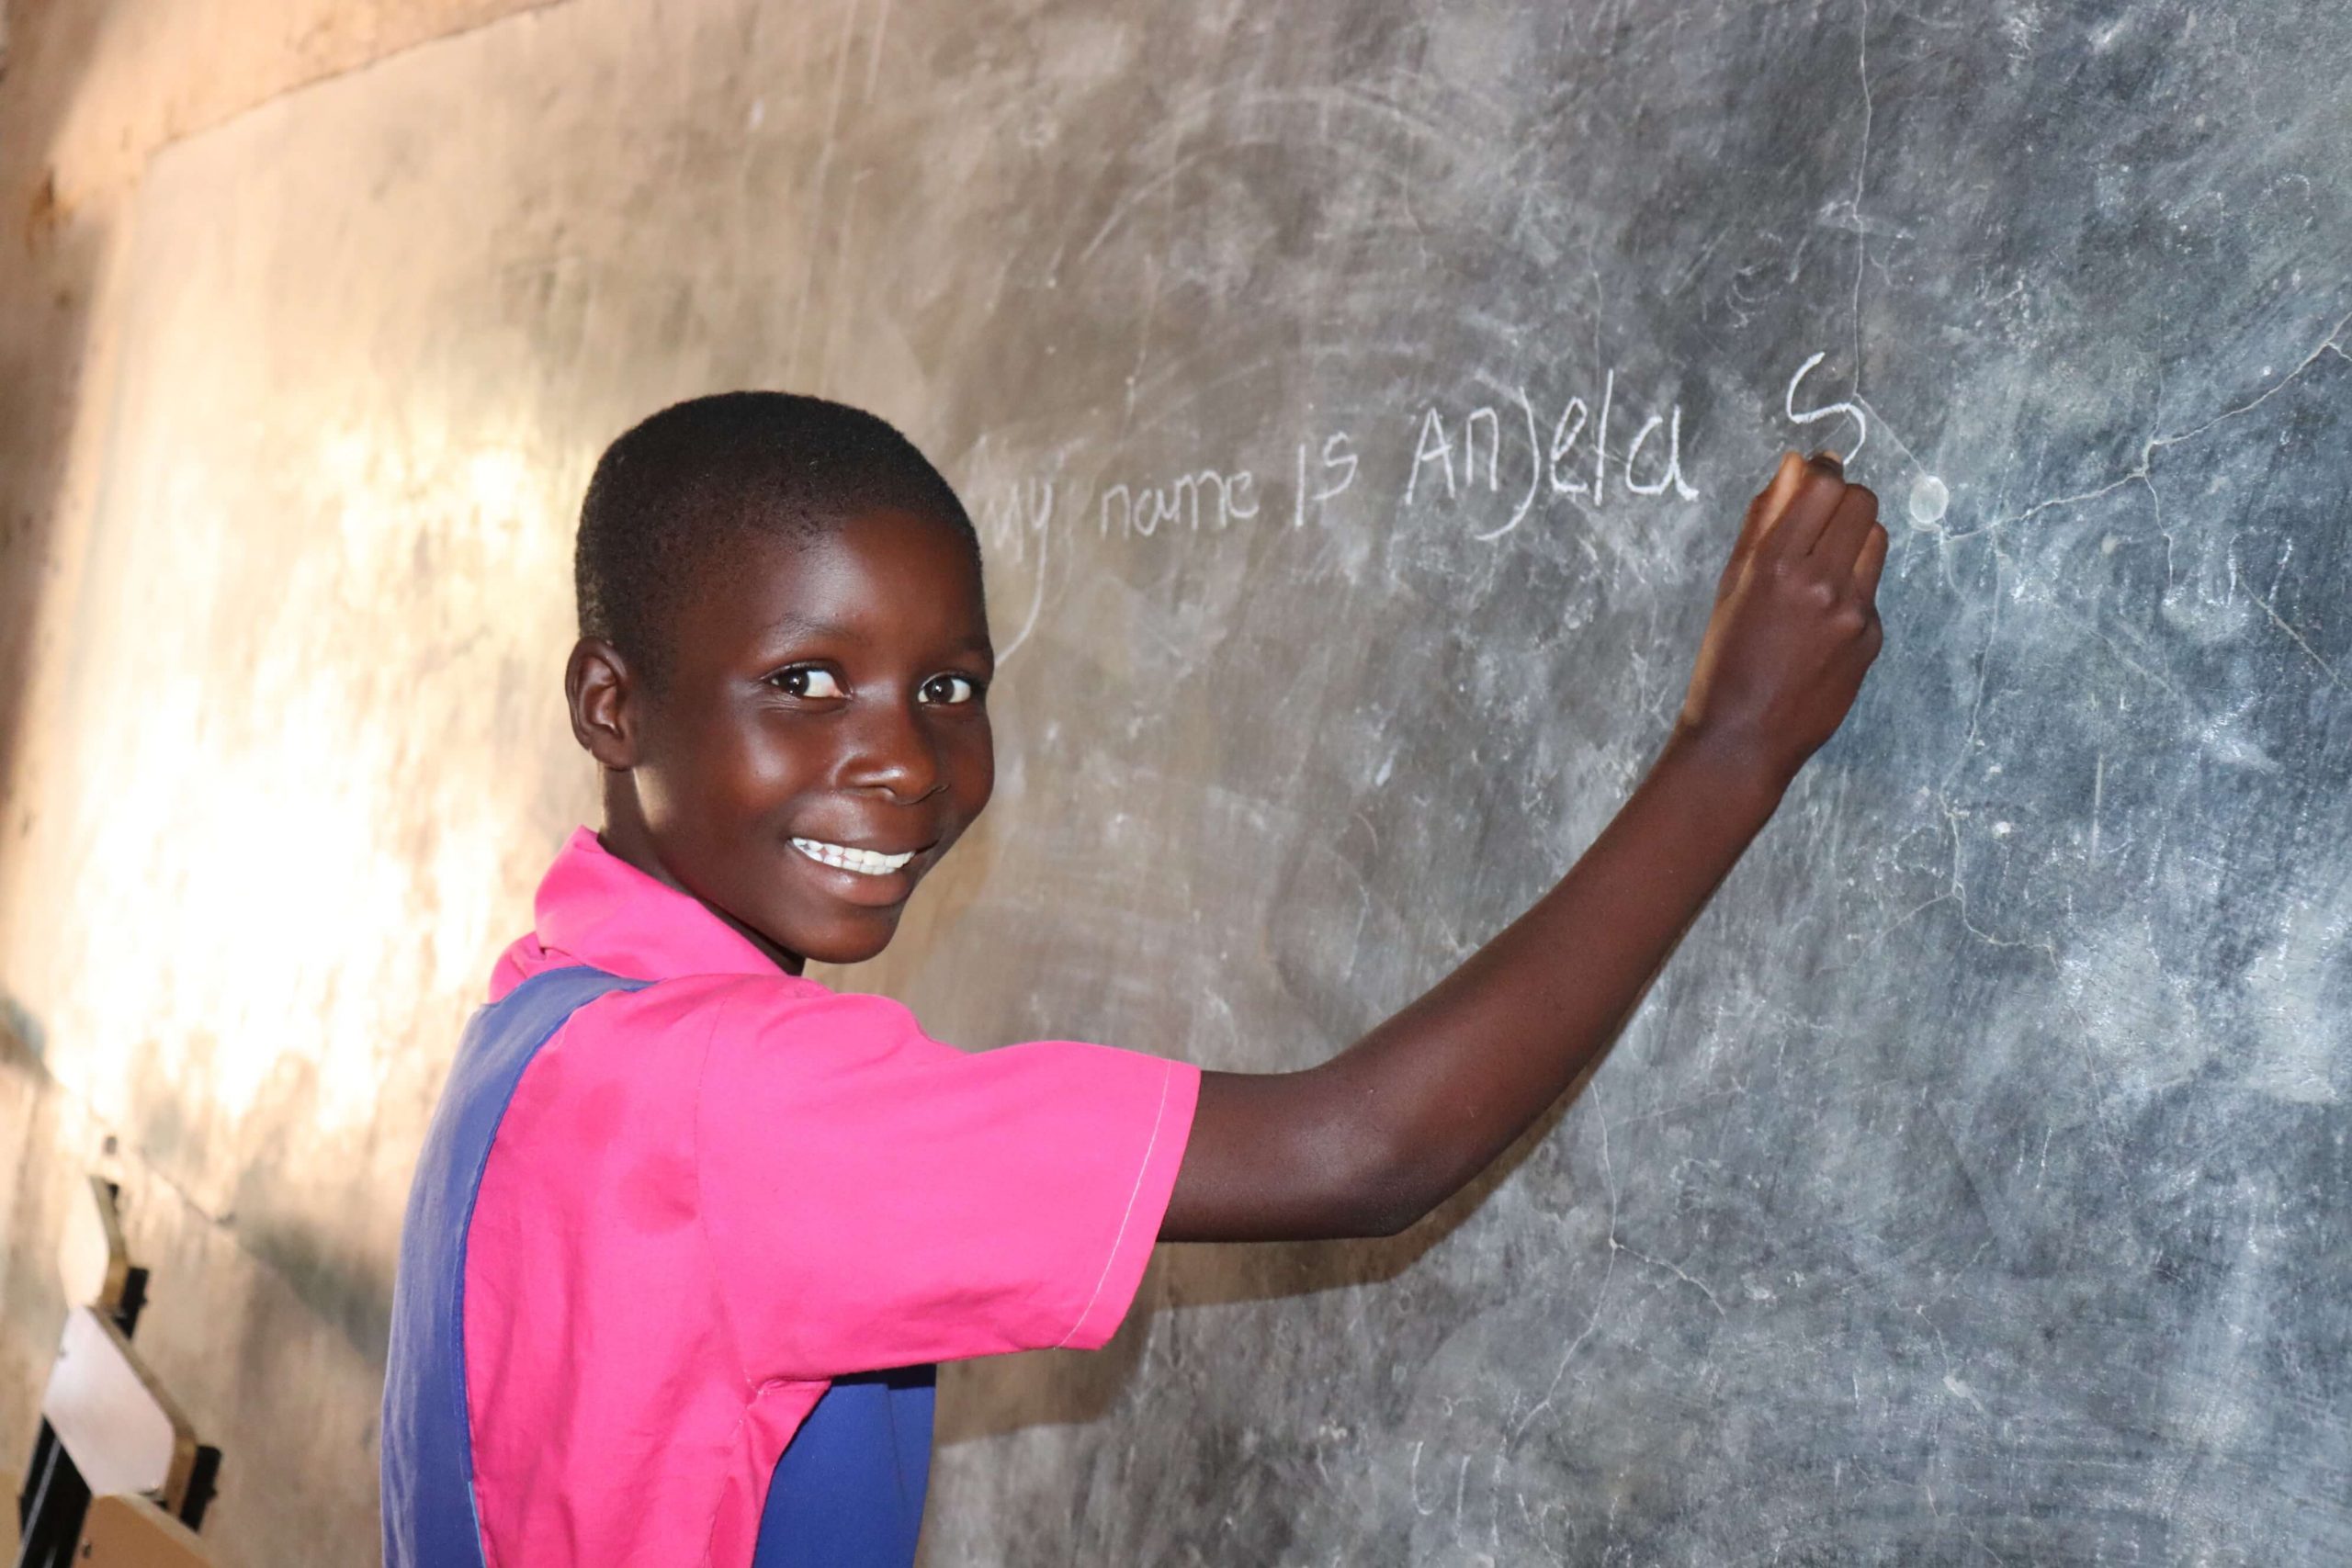 my name is Anjela S